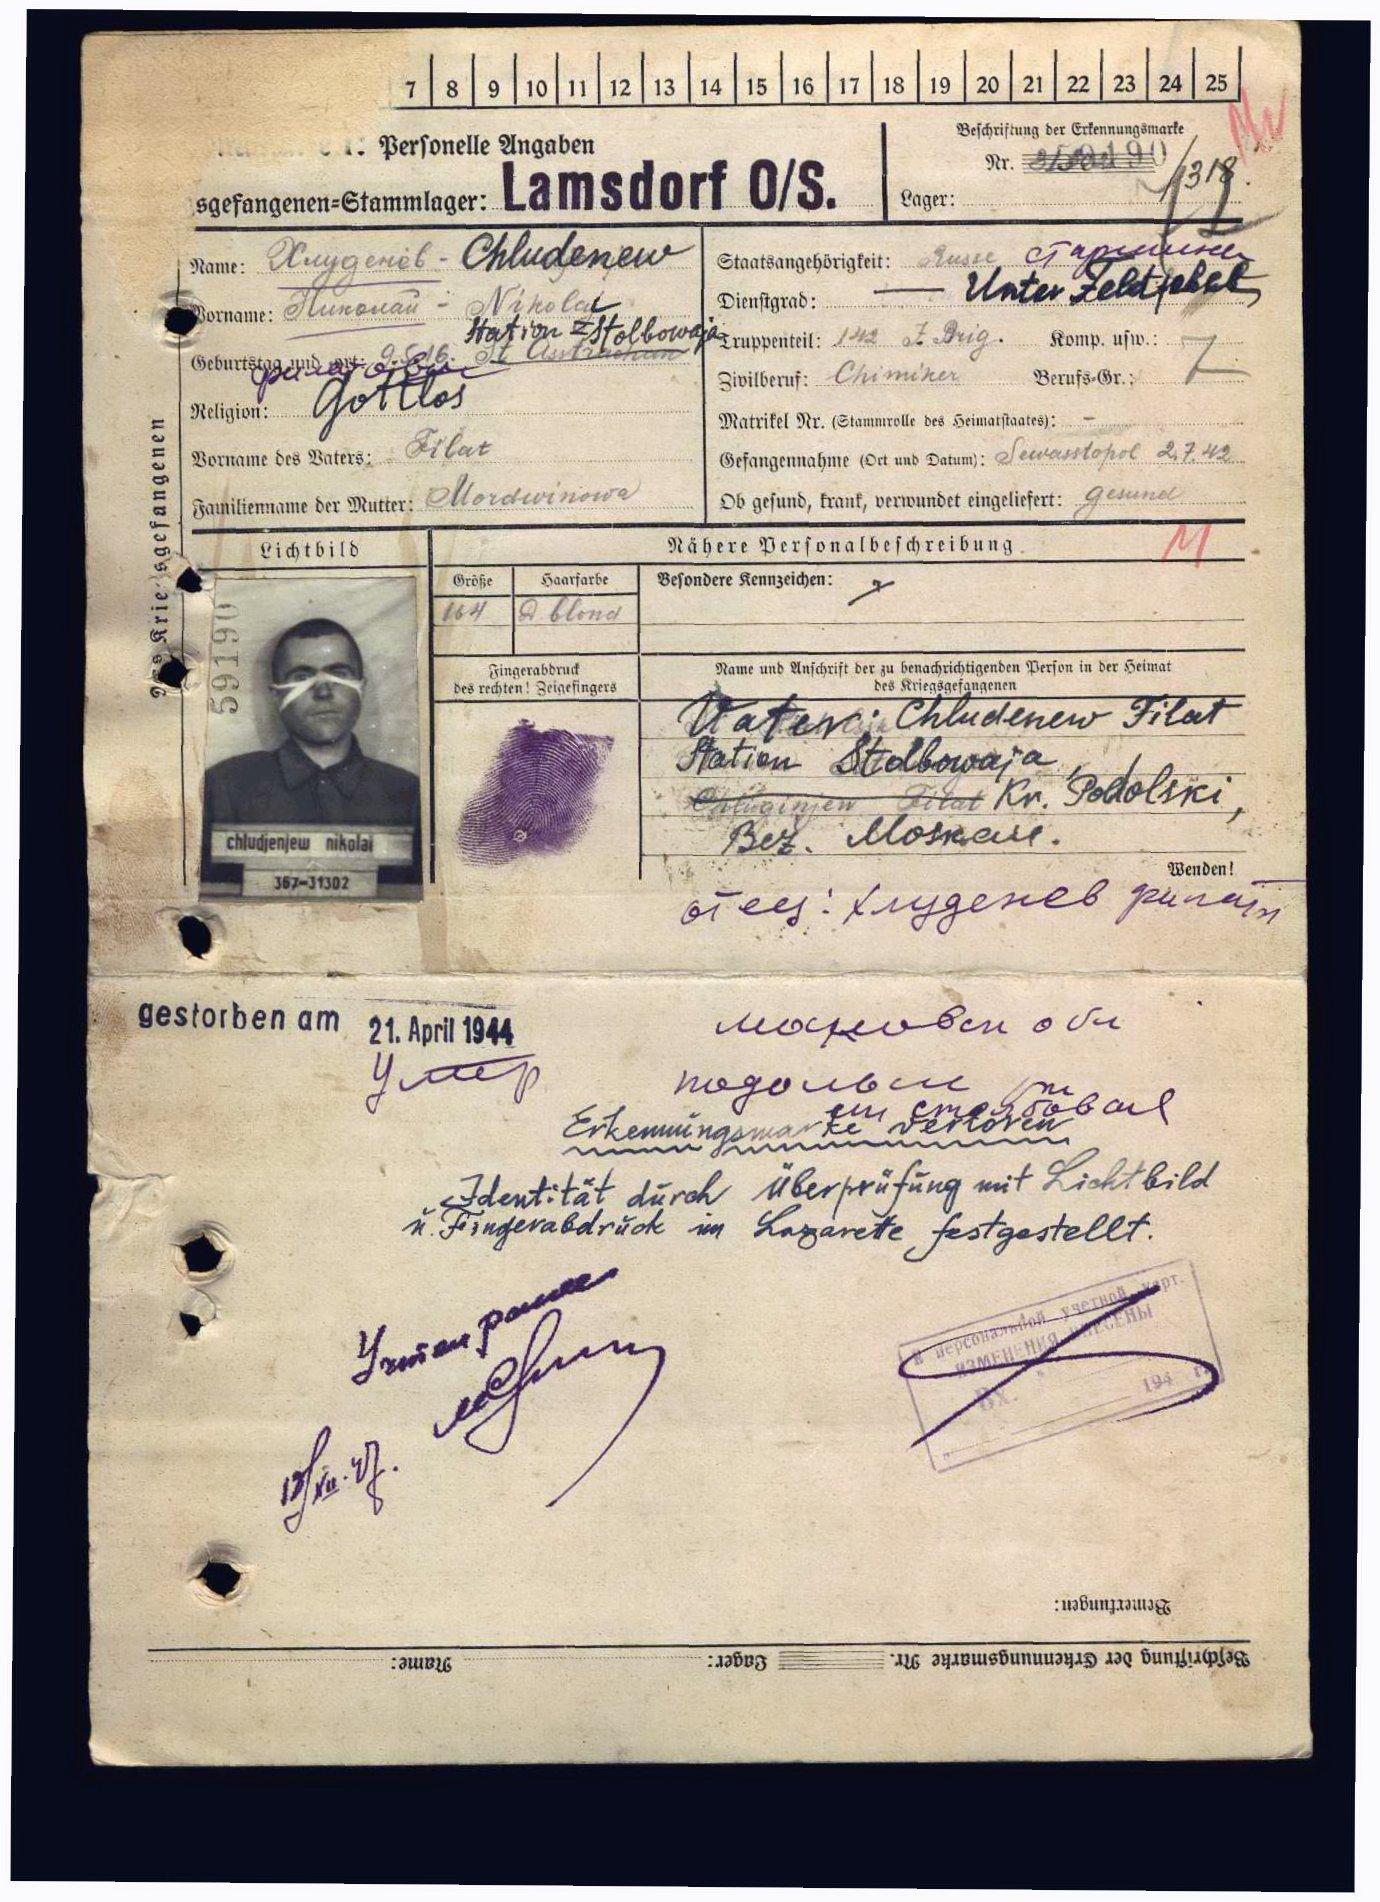 7 8 9 10 11 12 13 14 15 16 17 18 19 20 21 22 23 24 25
Personelle Angaben
Beschriftung der Erkennungsmarke
Nr. 59190
/318
sgefangenen=Stammlager: Lamsdorf O/S.
Lager:
Name: Хлуденев - Chludenew
Vorname: Николай - Nikolai
Station Stolbowaja
Geburtstag und -ort: 9.5.16. St. Asstrachan
Religion: Gottlos
Vorname des Vaters: Filat
Familienname der Mutter: Mordwinowa
Staatsangehörigkeit: Russe старшина
Dienstgrad: Unter Feldfebel
Truppenteil: 142 J. Brig. Komp. usw.:
Zivilberuf: Chimiker Berufs-Gr.: 7
Matrikel Nr. (Stammrolle des Heimatstaates): -
Gefangennahme (Ort und Datum): Sewasstopol 2.7.42
Ob gesund, krank, verwundet eingeliefert: gesund
des Kriegsgefangenen
Lichtbild
Nähere Personalbeschreibung
M
Größe Haarfarbe Besondere Kennzeichen:
164 D. blond
59190
chludjenjew nikolai
367-31302
Fingerabdruck
des rechten! Zeigefingers
Name und Anschrift der zu benachrichtigenden Person in der Heimat
des Kriegsgefangenen
Vater: Chludenew Filat
Station Stolbowaja,
Filat Kr. Podolski,
Bez. Moskau.
Wenden!
отец: Хлуденев Филат
gestorben am 21. April 1944
умер
московск обл
подольск
ст столбовая
Erkennungsmarke verloren
Identität durch Überprüfung mit Lichtbild
u. Fingerabdruck im Lazarette festgestellt.
Учтен ранее
13/XII.47.
В персональной учетной карт.
ИЗМЕНЕНИЯ ВНЕСЕНЫ
Вх.
194 г.
Bemerkungen:
Beschriftung der Erkennungsmarke Nr. Lager: Name: